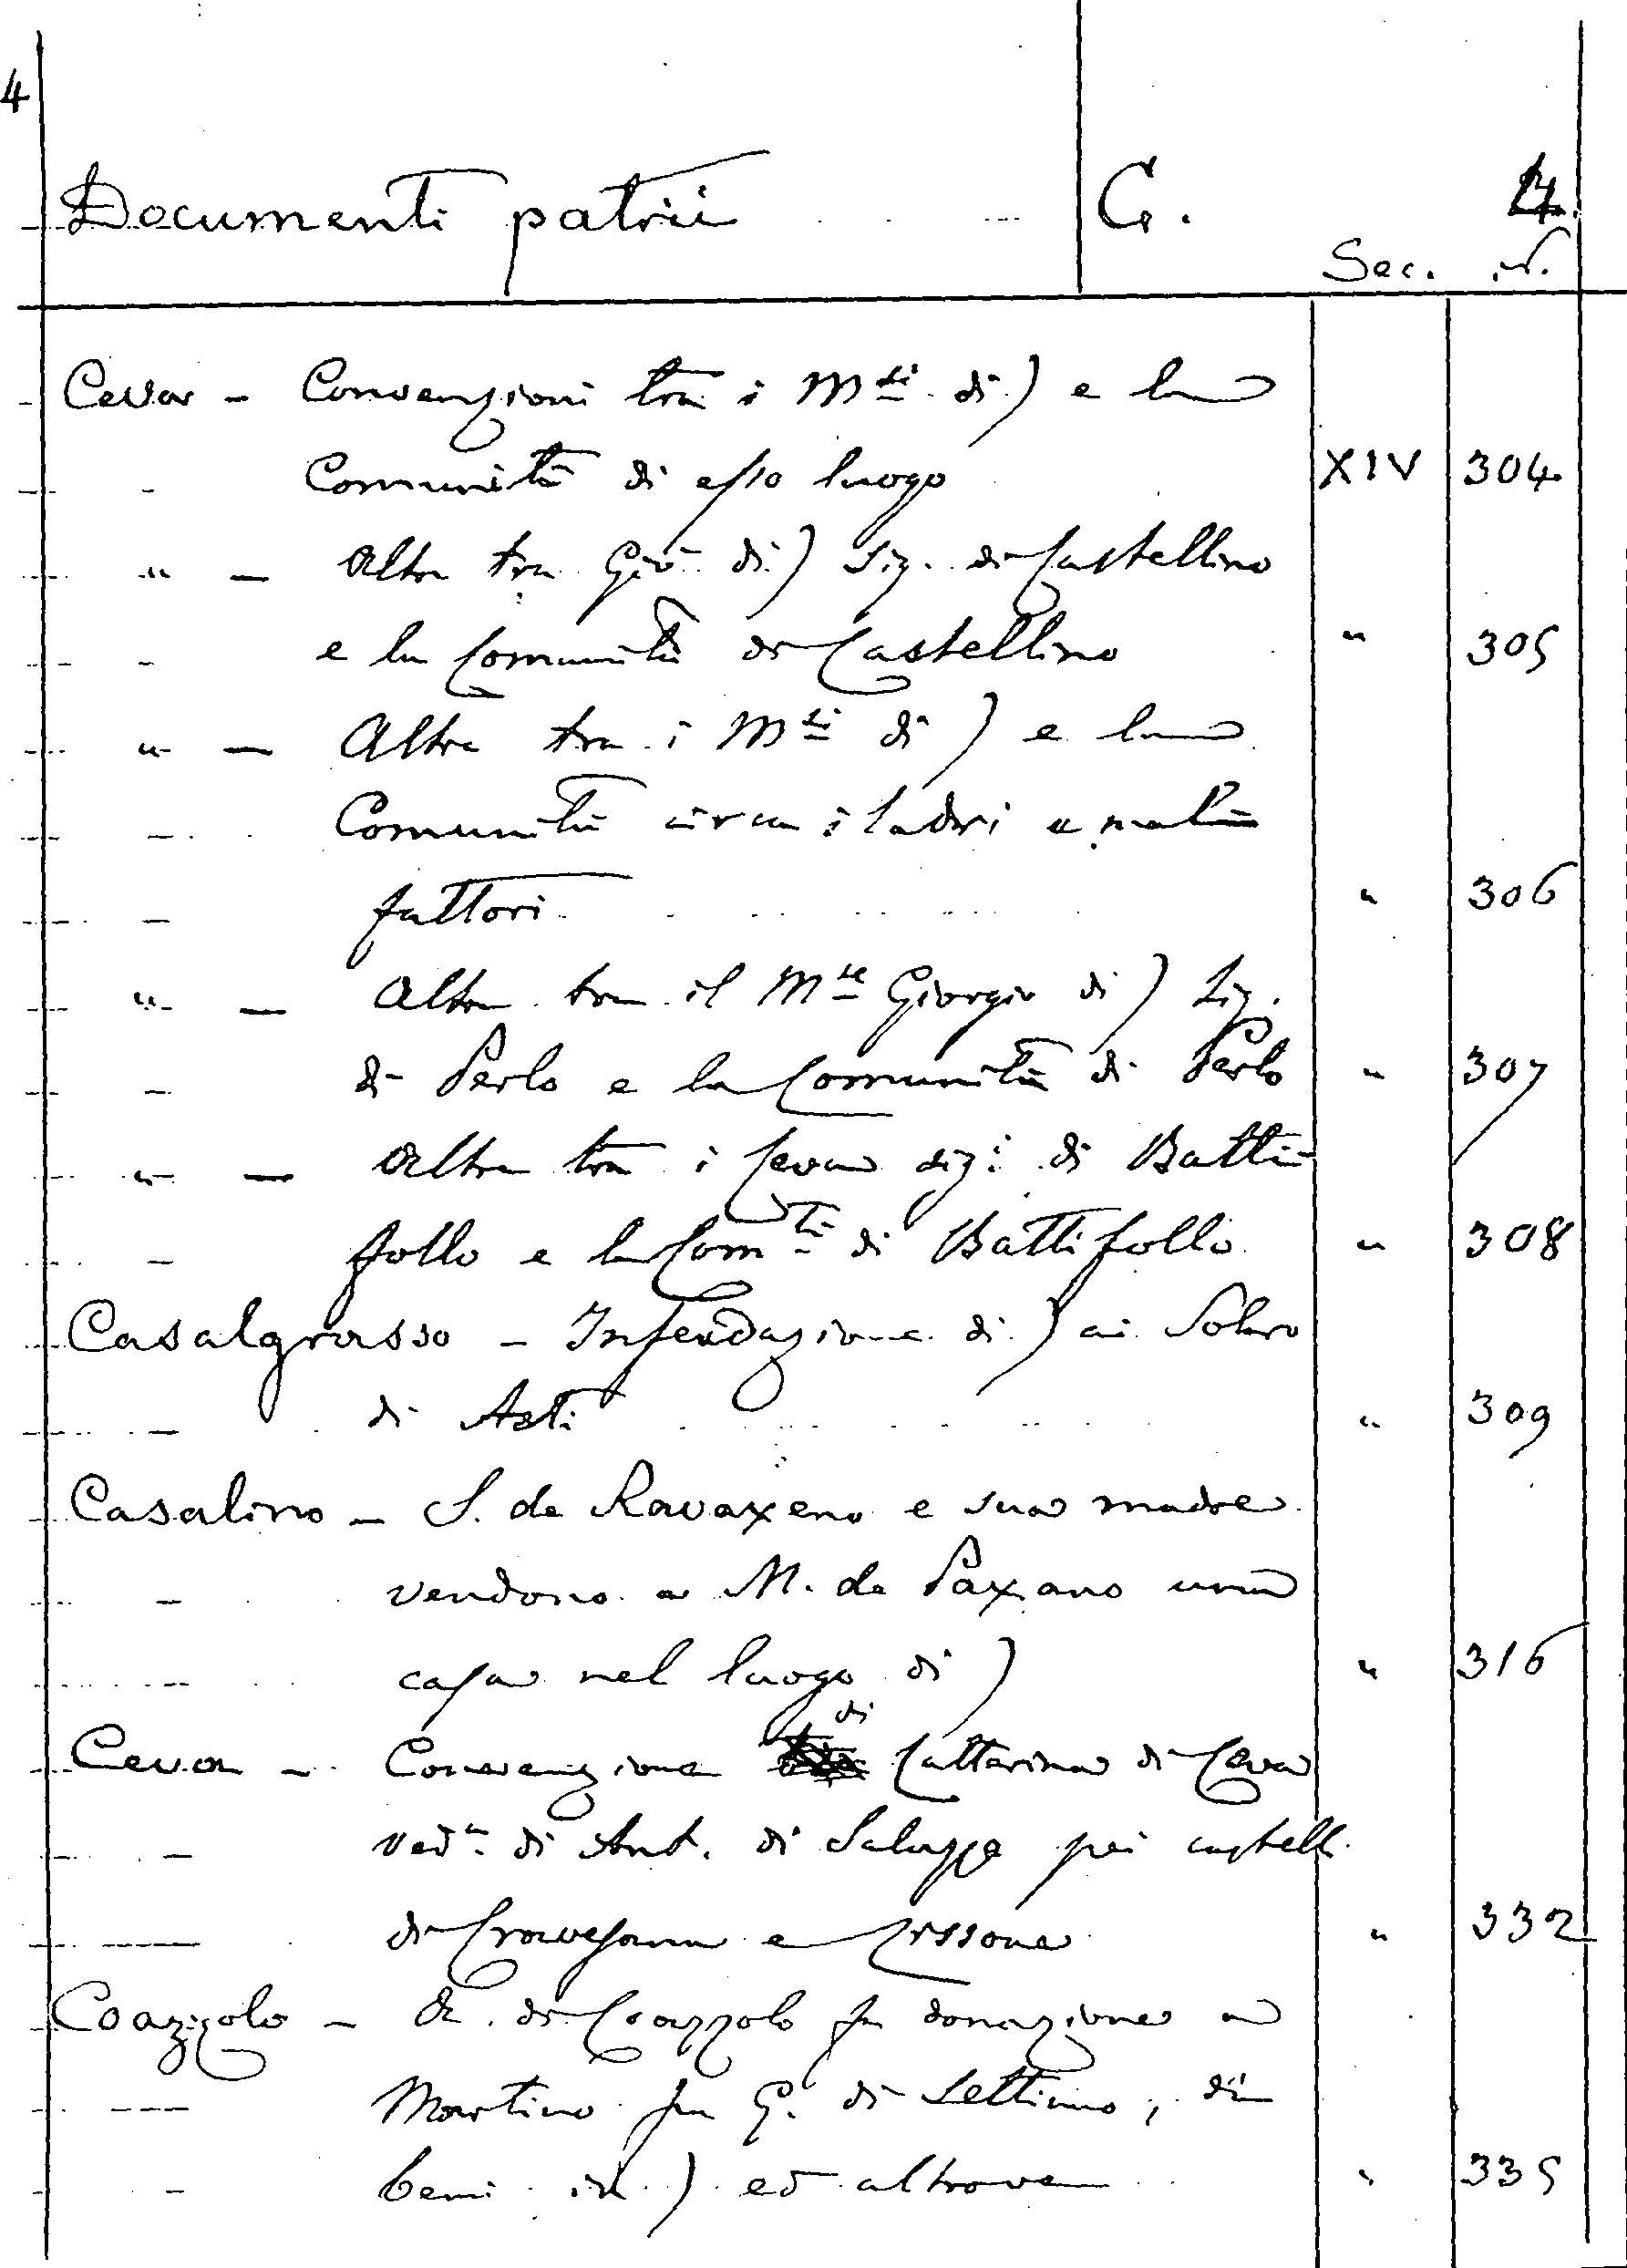 4
Documenti patrii C. 4.
Sec. N.
Ceva - Convenzioni tra i M.ti di ) e la
Comunità di esso luogo XIV 304
" - Altra tra Gio di ) Sig. di Castellino
e la Comunità di Castellino " 305
" - Altra tra i M.ti di ) e la
Comunità circa i ladri e mal=
fattori " 306
" - Altra tra il M.se Giorgio di ) Sig.
di Perlo e la Comunità di Perlo " 307
" - Altra tra i Ceva sig.i di Batti=
follo e la Com.tà di Battifollo " 308
Casalgrasso - Infeudazione di ) ai Solaro
di Asti " 309
Casalino - S. de Ravaxeno e sua madre
vendono a M. de Paxano una
casa nel luogo di ) " 316
Ceva - Convenzione di Catterina di Ceva
ved.a di Ant. di Saluzzo pei castell.
di Cravesana e Cissone " 332
Coazzolo - R. di Coazzolo fa donazione a
Martino fu G. di Settimo, di
beni in ) ed altrove " 335